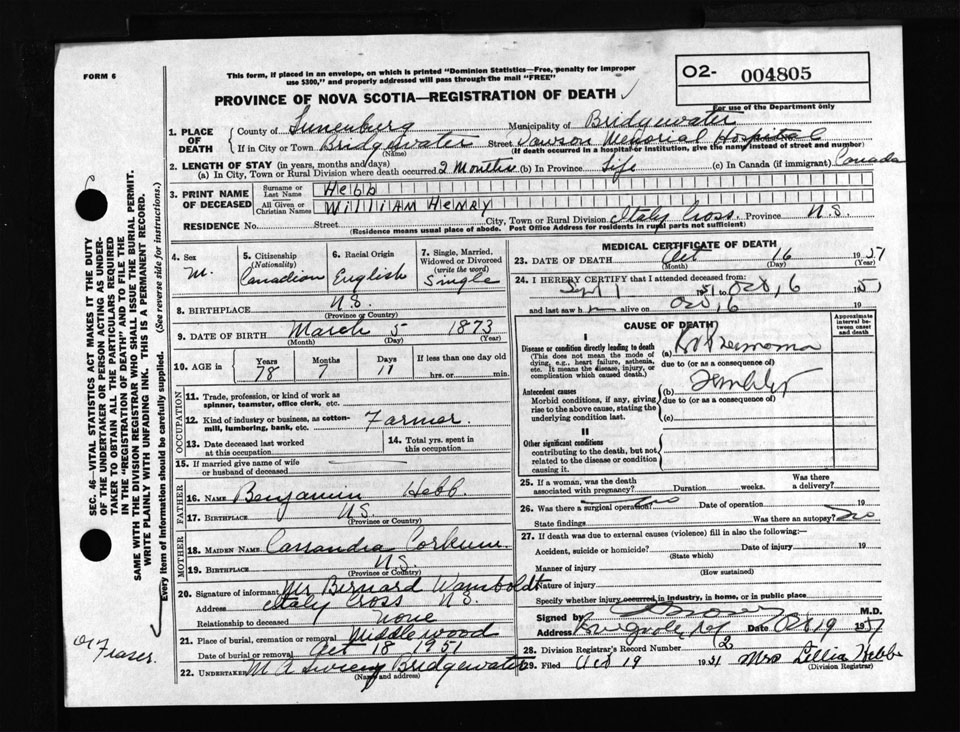 FORM 6
This form, if placed in an envelope, on which is printed "Dominion Statistics—Free, penalty for improper
use $300," and properly addressed will pass through the mail "FREE"
O2- 004805
For use of the Department only
PROVINCE OF NOVA SCOTIA—REGISTRATION OF DEATH
1. PLACE OF DEATH
County of Lunenburg Municipality of Bridgewater
If in City or Town Bridgewater Street Dawson Memorial Hospital
(Name) (If death occurred in a hospital or institution, give the name instead of street and number)
2. LENGTH OF STAY (in years, months and days)
(a) In City, Town or Rural Division where death occurred 2 Months (b) In Province Life (c) In Canada (if immigrant) Canada
3. PRINT NAME OF DECEASED
Surname or Last Name Hebb
All Given or Christian Names William Henry
RESIDENCE No. Street City, Town or Rural Division Italy Cross Province N.S.
(Residence means usual place of abode. Post Office Address for residents in rural parts not sufficient)
4. Sex M.
5. Citizenship (Nationality) Canadian
6. Racial Origin English
7. Single, Married, Widowed or Divorced (write the word) Single
8. BIRTHPLACE N.S.
(Province or Country)
9. DATE OF BIRTH March 5 1873
(Month) (Day) (Year)
10. AGE in Years 78 Months 7 Days 11 If less than one day old hrs. or min.
OCCUPATION
11. Trade, profession, or kind of work as
spinner, teamster, office clerk, etc.
12. Kind of industry or business, as cotton-
mill, lumbering, bank, etc. Farmer
13. Date deceased last worked
at this occupation
14. Total yrs. spent in
this occupation
15. If married give name of wife
or husband of deceased
FATHER
16. NAME Benjamin Hebb
17. BIRTHPLACE N.S.
(Province or Country)
MOTHER
18. MAIDEN NAME Cassandra Corkum
19. BIRTHPLACE N.S.
(Province or Country)
20. Signature of informant Mr Bernard Wamboldt
Address Italy Cross N.S.
Relationship to deceased none
21. Place of burial, cremation or removal Middlewood
Date of burial or removal Oct 18 1951
22. UNDERTAKER M A Bridgewater
(Name and address)
MEDICAL CERTIFICATE OF DEATH
23. DATE OF DEATH Oct 16 1951
(Month) (Day) (Year)
24. I HEREBY CERTIFY that I attended deceased from:
Sept 1 1951 to Oct 16 1951
and last saw h alive on Oct 16 19
CAUSE OF DEATH
Approximate interval between onset and death
I
Disease or condition directly leading to death
(This does not mean the mode of
dying, e.g., heart failure, asthenia,
etc. It means the disease, injury, or
complication which caused death.)
(a) Pneumonia
due to (or as a consequence of)
Antecedent causes
Morbid conditions, if any, giving
rise to the above cause, stating the
underlying condition last.
(b)
due to (or as a consequence of)
(c)
II
Other significant conditions
contributing to the death, but not
related to the disease or condition
causing it.
25. If a woman, was the death
associated with pregnancy? Duration weeks. Was there
a delivery?
26. Was there a surgical operation? no Date of operation 19
State findings Was there an autopsy? no
27. If death was due to external causes (violence) fill in also the following:—
Accident, suicide or homicide? Date of injury 19
(State which)
Manner of injury
(How sustained)
Nature of injury
Specify whether injury occurred in industry, in home, or in public place
Signed by M.D.
Address Date Oct 19 1951
28. Division Registrar's Record Number 2
29. Filed Oct 19 1951 Mrs Lellia Hebb
(Division Registrar)
SEC. 46—VITAL STATISTICS ACT MAKES IT THE DUTY
OF THE UNDERTAKER OR PERSON ACTING AS UNDER-
TAKER TO OBTAIN ALL THE PARTICULARS REQUIRED
IN THE "REGISTRATION OF DEATH" AND TO FILE THE
SAME WITH THE DIVISION REGISTRAR WHO SHALL ISSUE THE BURIAL PERMIT.
WRITE PLAINLY WITH UNFADING INK. THIS IS A PERMANENT RECORD.
Every item of information should be carefully supplied. (See reverse side for instructions.)
Fraser.